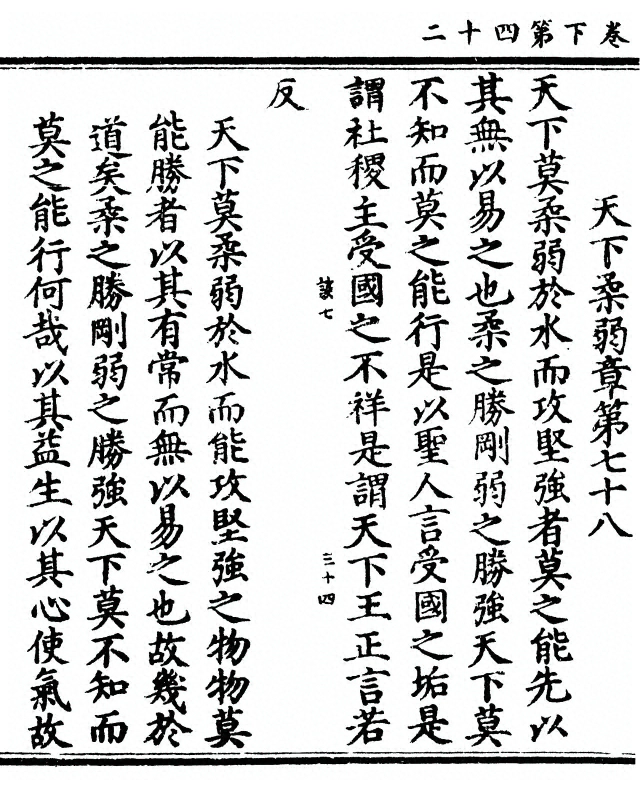 卷下第四十二
天下柔弱章第七十八
天下莫柔弱於水而攻堅強者莫之能先以
其無以易之也柔之勝剛弱之勝強天下莫
不知而莫之能行是以聖人言受國之垢是
謂社稷主受國之不祥是謂天下王正言若
談七
三十四
反
天下莫柔弱於水而能攻堅強之物物莫
能勝者以其有常而無以易之也故幾於
道矣柔之勝剛弱之勝強天下莫不知而
莫之能行何哉以其益生以其心使氣故